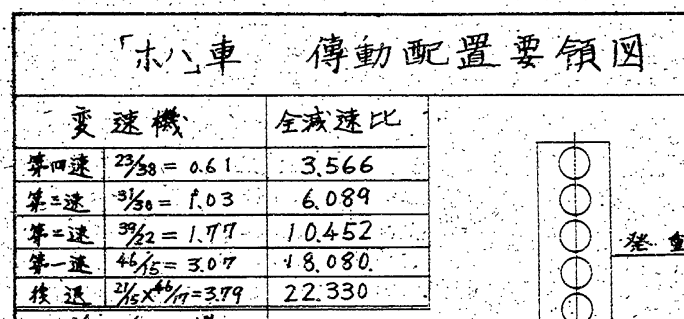 「ホハ」車 傳動配置要領図
変速機 全減速比
第四速 23/38 = 0.61 3.566
第三速 31/30 = 1.03 6.089
第二速 39/22 = 1.77 10.452
第一速 46/15 = 3.07 18.080
後退 21/15×46/17=3.79 22.330
発動